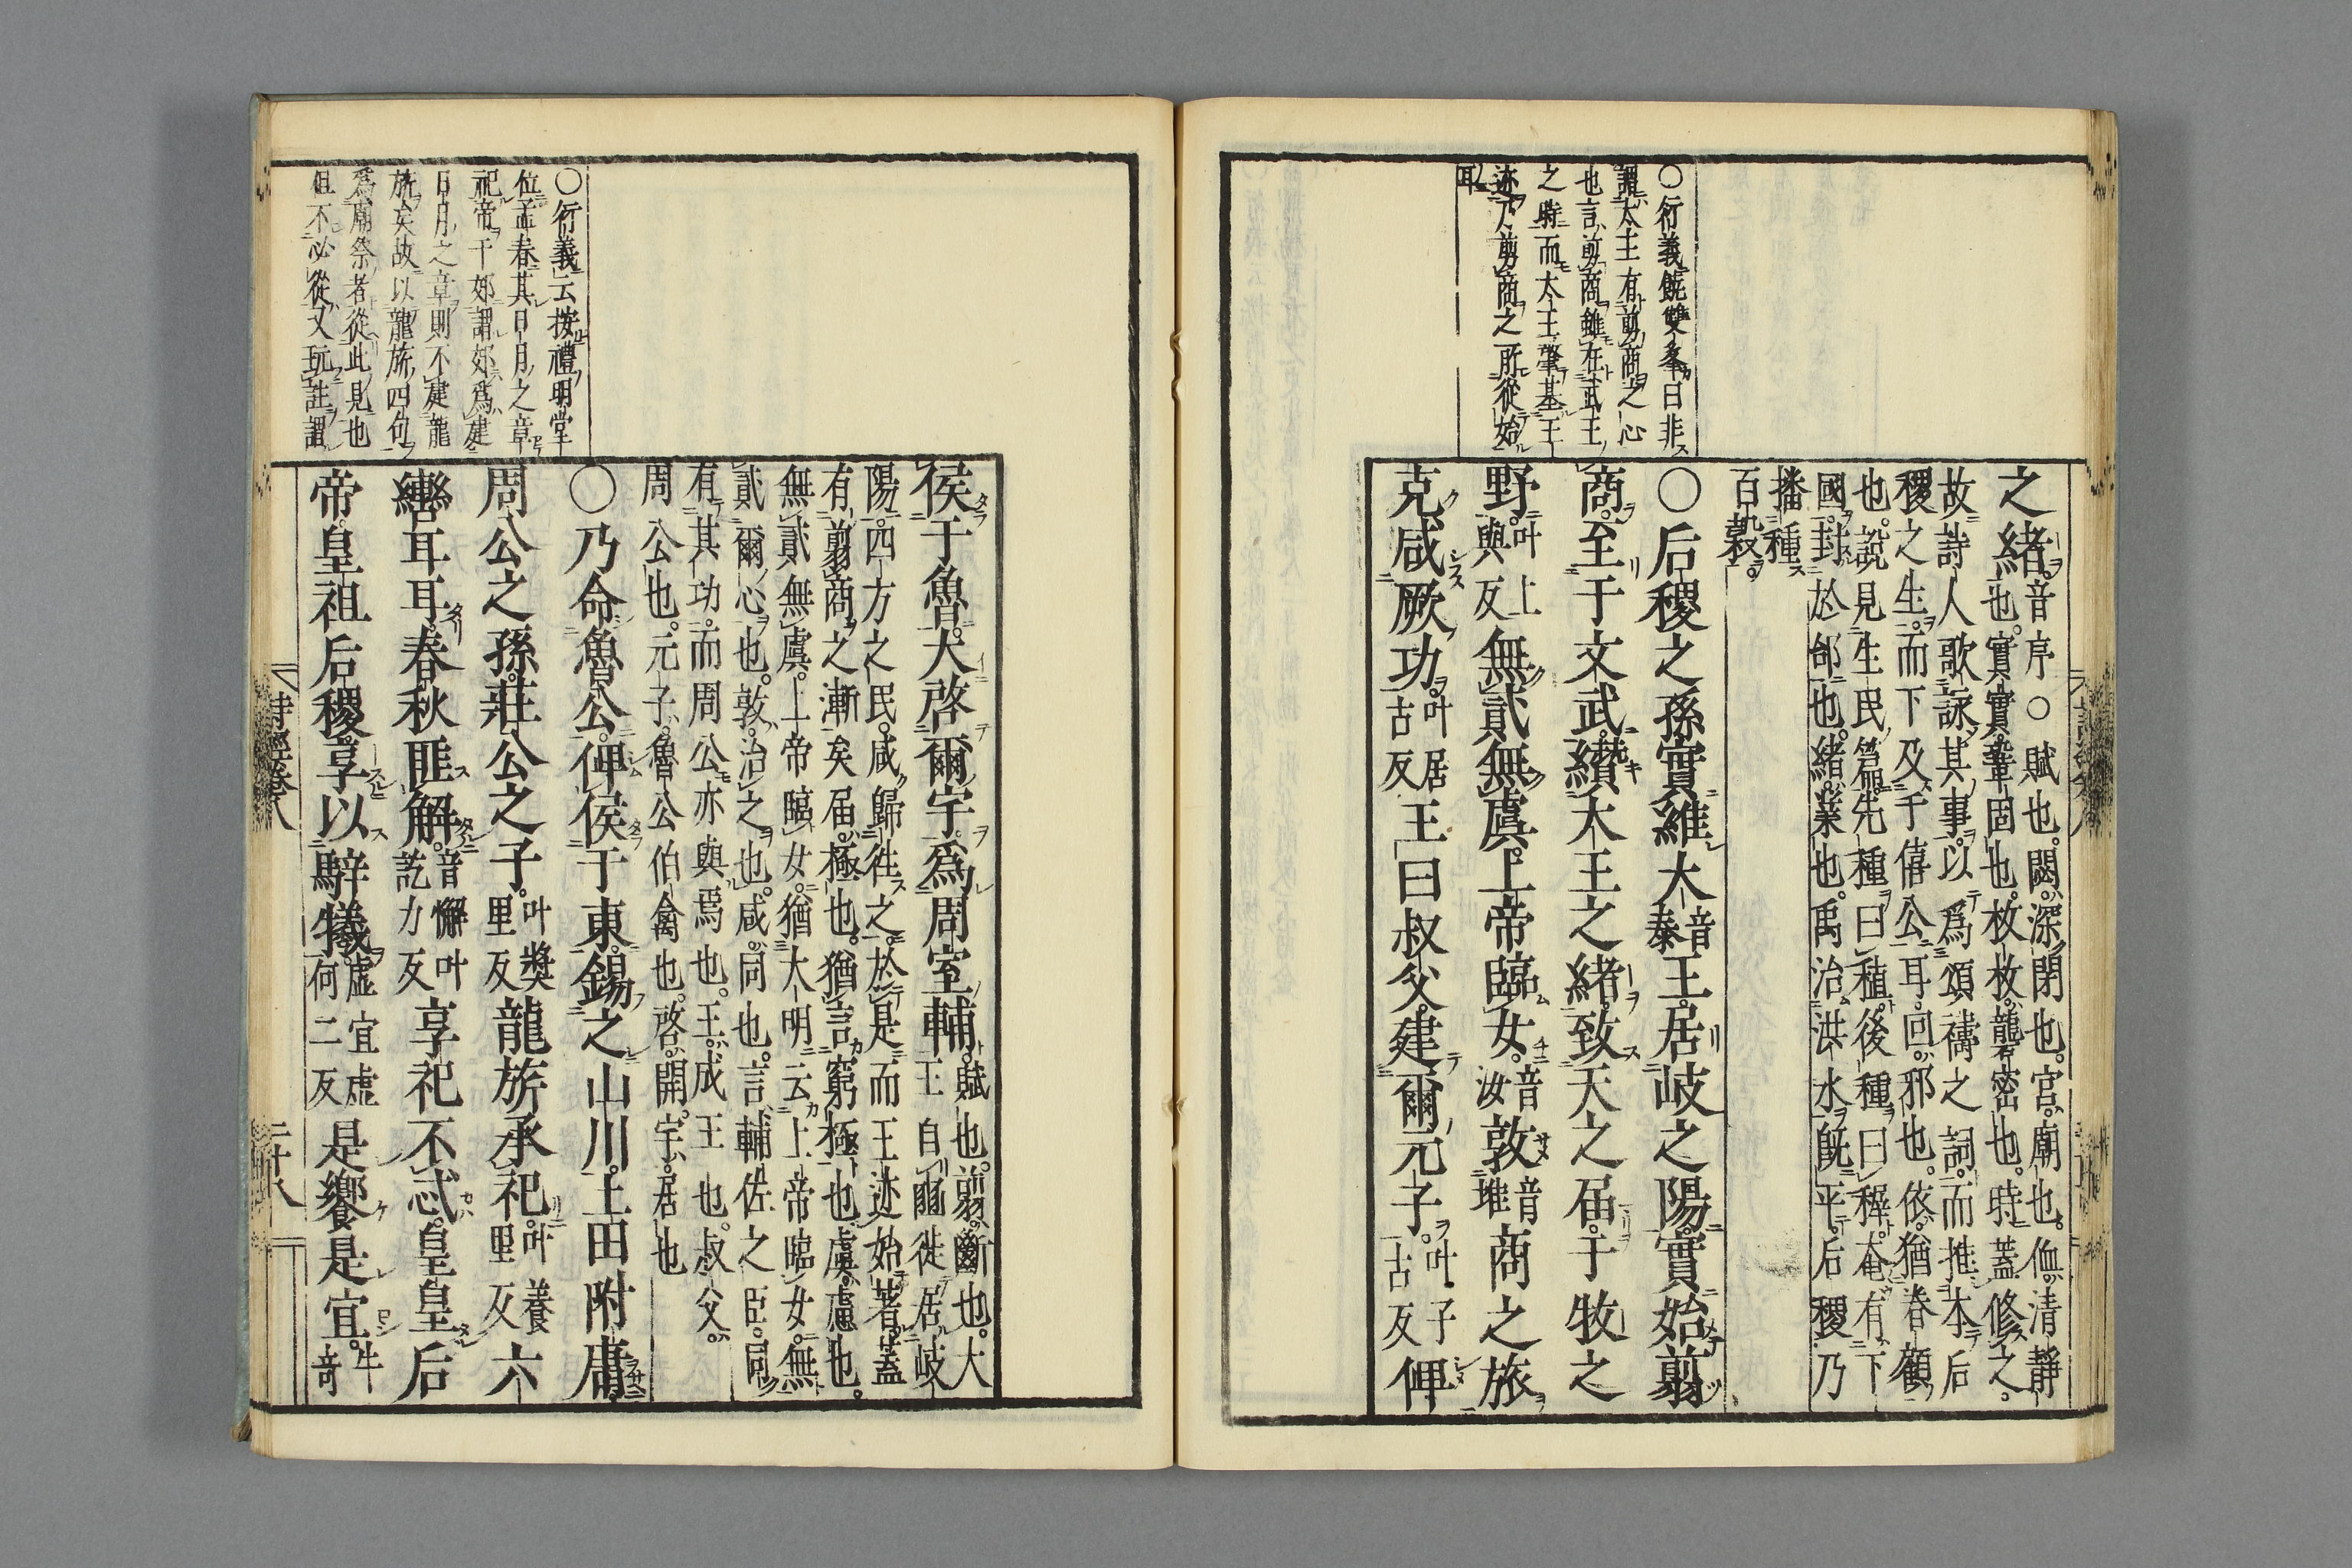 之緒音序○賦也閟深閉也宮廟也侐清靜
也實實鞏固也枚枚礱密也時蓋修之
故詩人歌詠其事以爲頌禱之詞而推本后
稷之生而下及于僖公耳回邪也依猶眷顧
也說見生民篇先種曰稙後種曰穉奄有下
國封於邰也緒業也禹治洪水既平后稷乃
播種
百穀
○后稷之孫實維大音泰王居岐之陽實始翦
商至于文武纘大王之緒致天之届于牧之
野叶上與反無貳無虞上帝臨女音汝敦音堆商之旅
克咸厥功叶居古反王曰叔父建爾元子叶子古反俾
○衍義饒雙峯曰非
謂太王有剪商之心
也言剪商雖在武王
之時而太王肇基王
迹乃剪商之所從始
耳
侯于魯大啓爾宇爲周室輔賦也翦斷也大王自豳徙居岐
陽四方之民咸歸往之於是而王迹始著蓋
有翦商之漸矣届極也猶言窮極也虞慮也
無貳無虞上帝臨女猶大明云上帝臨女無
貳爾心也敦治之也咸同也言輔佐之臣同
有其功而周公亦與焉也王成王也叔父
周公也元子魯公伯禽也啓開宇居也
○乃命魯公俾侯于東錫之山川土田附庸
周公之孫莊公之子叶奬里反龍旂承祀叶養里反六
轡耳耳春秋匪解音懈叶訖力反享祀不忒皇皇后
帝皇祖后稷享以騂犧虛宜虛何二反是饗是宜牛奇
○衍義云按禮明堂
位孟春其日月之章
祀帝于郊謂郊爲建
日月之章則不建龍
旂矣故以龍旂四句
爲廟祭者從此見也
但不必從又玩註謂
詩經卷八
二十八